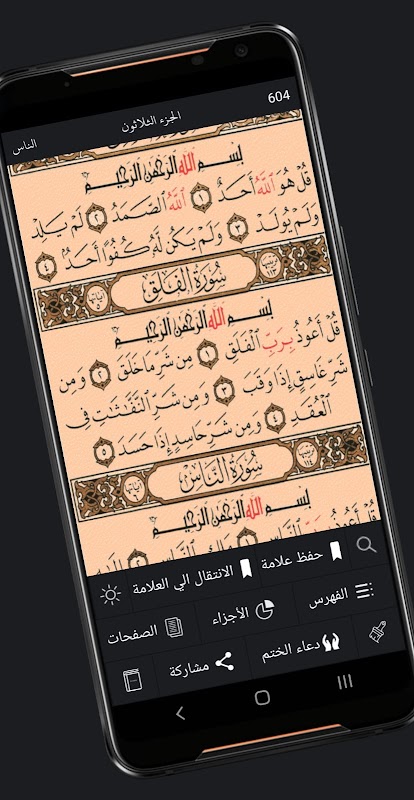 604
الجزء الثلاثون
الناس
بسم الله الرحمن الرحيم
قُلْ هُوَ اللَّهُ أَحَدٌ ١ اللَّهُ الصَّمَدُ ٢ لَمْ يَلِدْ
وَلَمْ يُولَدْ ٣ وَلَمْ يَكُن لَّهُ كُفُوًا أَحَدٌ ٤
سُورَةُ الْفَلَقِ
بسم الله الرحمن الرحيم
قُلْ أَعُوذُ بِرَبِّ الْفَلَقِ ١ مِن شَرِّ مَا خَلَقَ ٢ وَمِن
شَرِّ غَاسِقٍ إِذَا وَقَبَ ٣ وَمِن شَرِّ النَّفَّٰثَٰتِ فِي
الْعُقَدِ ٤ وَمِن شَرِّ حَاسِدٍ إِذَا حَسَدَ ٥
سُورَةُ النَّاسِ
بسم الله الرحمن الرحيم
قُلْ أَعُوذُ بِرَبِّ النَّاسِ
حفظ علامة
الانتقال الي العلامة
الفهرس
الأجزاء
الصفحات
دعاء الختم
مشاركة